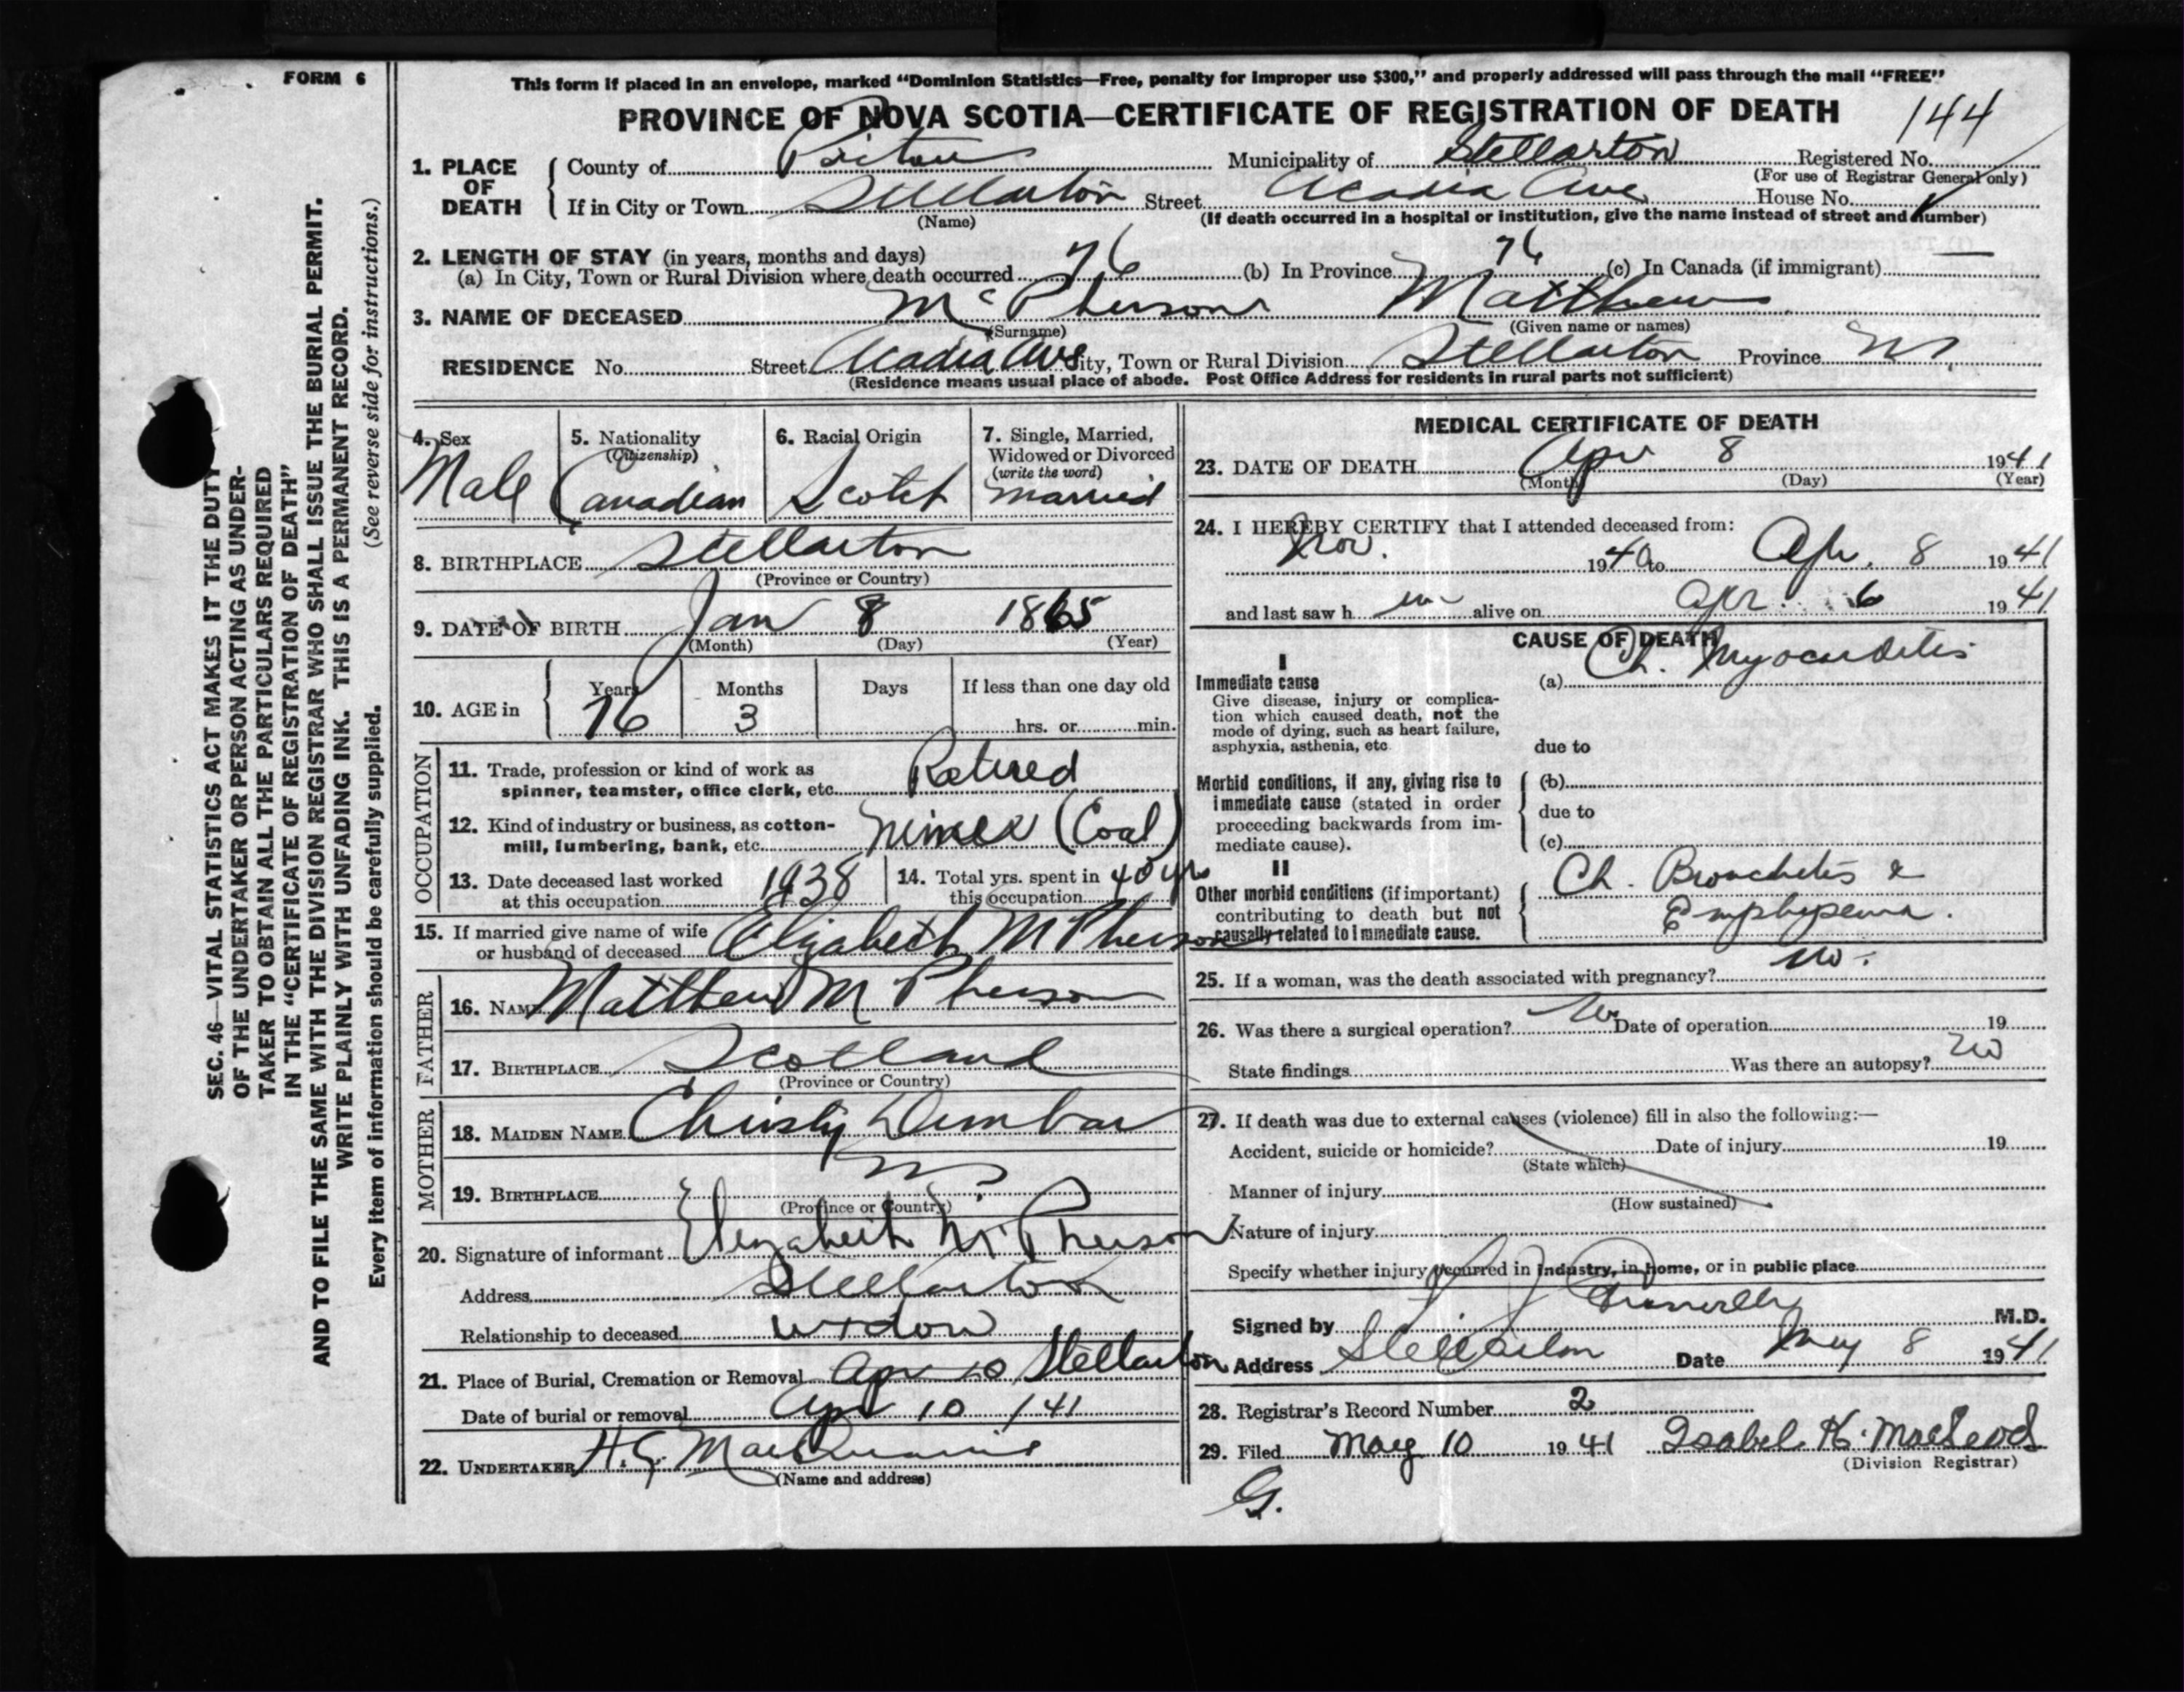 FORM 6
SEC. 46—VITAL STATISTICS ACT MAKES IT THE DUTY
OF THE UNDERTAKER OR PERSON ACTING AS UNDER-
TAKER TO OBTAIN ALL THE PARTICULARS REQUIRED
IN THE "CERTIFICATE OF REGISTRATION OF DEATH"
AND TO FILE THE SAME WITH THE DIVISION REGISTRAR WHO SHALL ISSUE THE BURIAL PERMIT.
WRITE PLAINLY WITH UNFADING INK. THIS IS A PERMANENT RECORD.
(See reverse side for instructions.)
Every item of information should be carefully supplied.
This form if placed in an envelope, marked "Dominion Statistics—Free, penalty for improper use $300," and properly addressed will pass through the mail "FREE"
PROVINCE OF NOVA SCOTIA—CERTIFICATE OF REGISTRATION OF DEATH
144
1. PLACE OF DEATH
County of Pictou Municipality of Stellarton Registered No.
(For use of Registrar General only)
If in City or Town Stellarton Street Acadia Ave House No.
(Name) (If death occurred in a hospital or institution, give the name instead of street and number)
2. LENGTH OF STAY (in years, months and days)
(a) In City, Town or Rural Division where death occurred 76 (b) In Province 76 (c) In Canada (if immigrant) —
3. NAME OF DECEASED McPherson Matthew
(Surname) (Given name or names)
RESIDENCE No. Street Acadia Ave City, Town or Rural Division Stellarton Province NS
(Residence means usual place of abode. Post Office Address for residents in rural parts not sufficient)
4. Sex Male
5. Nationality (Citizenship) Canadian
6. Racial Origin Scotch
7. Single, Married, Widowed or Divorced (write the word) married
8. BIRTHPLACE Stellarton
(Province or Country)
9. DATE OF BIRTH Jan 8 1865
(Month) (Day) (Year)
10. AGE in Years 76 Months 3 Days If less than one day old
hrs. or min.
OCCUPATION
11. Trade, profession or kind of work as
spinner, teamster, office clerk, etc. Retired
12. Kind of industry or business, as cotton-
mill, lumbering, bank, etc. miner (Coal)
13. Date deceased last worked
at this occupation 1938
14. Total yrs. spent in
this occupation 40 yrs
15. If married give name of wife
or husband of deceased Elizabeth McPherson
FATHER
16. NAME Matthew McPherson
17. BIRTHPLACE Scotland
(Province or Country)
MOTHER
18. MAIDEN NAME Christy Dunbar
19. BIRTHPLACE NS
(Province or Country)
20. Signature of informant Elizabeth McPherson
Address Stellarton
Relationship to deceased widow
21. Place of Burial, Cremation or Removal Apr 10 Stellarton
Date of burial or removal Apr 10 /41
22. UNDERTAKER H.G. MacQuarrie
(Name and address)
MEDICAL CERTIFICATE OF DEATH
23. DATE OF DEATH Apr 8 1941
(Month) (Day) (Year)
24. I HEREBY CERTIFY that I attended deceased from:
Nov. 1940 to Apr. 8 1941
and last saw him alive on Apr. 6 1941
CAUSE OF DEATH
I
Immediate cause (a) Ch. Myocarditis
Give disease, injury or complica-
tion which caused death, not the
mode of dying, such as heart failure,
asphyxia, asthenia, etc
due to
Morbid conditions, if any, giving rise to (b)
immediate cause (stated in order
proceeding backwards from im- due to
mediate cause). (c)
II
Other morbid conditions (if important) Ch. Bronchitis &
contributing to death but not Emphysema.
causally related to immediate cause.
25. If a woman, was the death associated with pregnancy? no.
26. Was there a surgical operation? No Date of operation 19
State findings Was there an autopsy? No
27. If death was due to external causes (violence) fill in also the following:—
Accident, suicide or homicide? Date of injury 19
(State which)
Manner of injury
(How sustained)
Nature of injury
Specify whether injury occurred in industry, in home, or in public place
Signed by M.D.
Address Stellarton Date May 8 1941
28. Registrar's Record Number 2
29. Filed May 10 1941 Isabel K. MacLeod
(Division Registrar)
G.